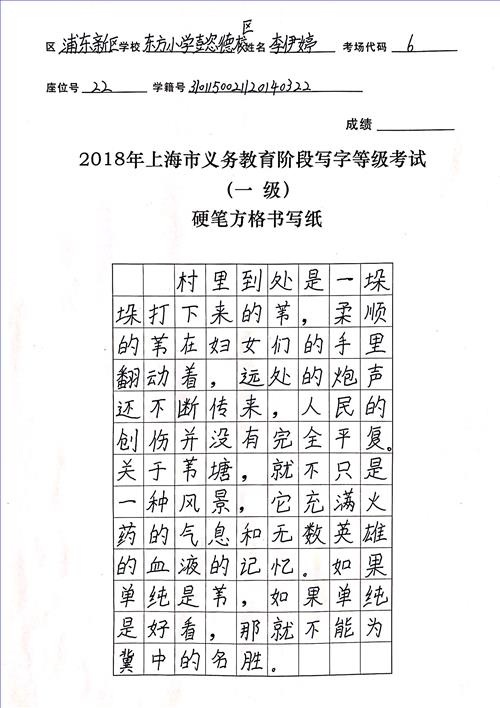 区
区 浦东新区 学校 东方小学彭德校 姓名 李伊婷 考场代码 6
座位号 22 学籍号 310115002120140322
成绩
2018年上海市义务教育阶段写字等级考试
（一 级）
硬笔方格书写纸
村里到处是一垛
垛打下来的苇，柔顺
的苇在妇女们的手里
翻动着，远处的炮声
还不断传来，人民的
创伤并没有完全平复。
关于苇塘，就不只是
一种风景，它充满火
药的气息和无数英雄
的血液的记忆。如果
单纯是苇，如果单纯
是好看，那就不能为
冀中的名胜。